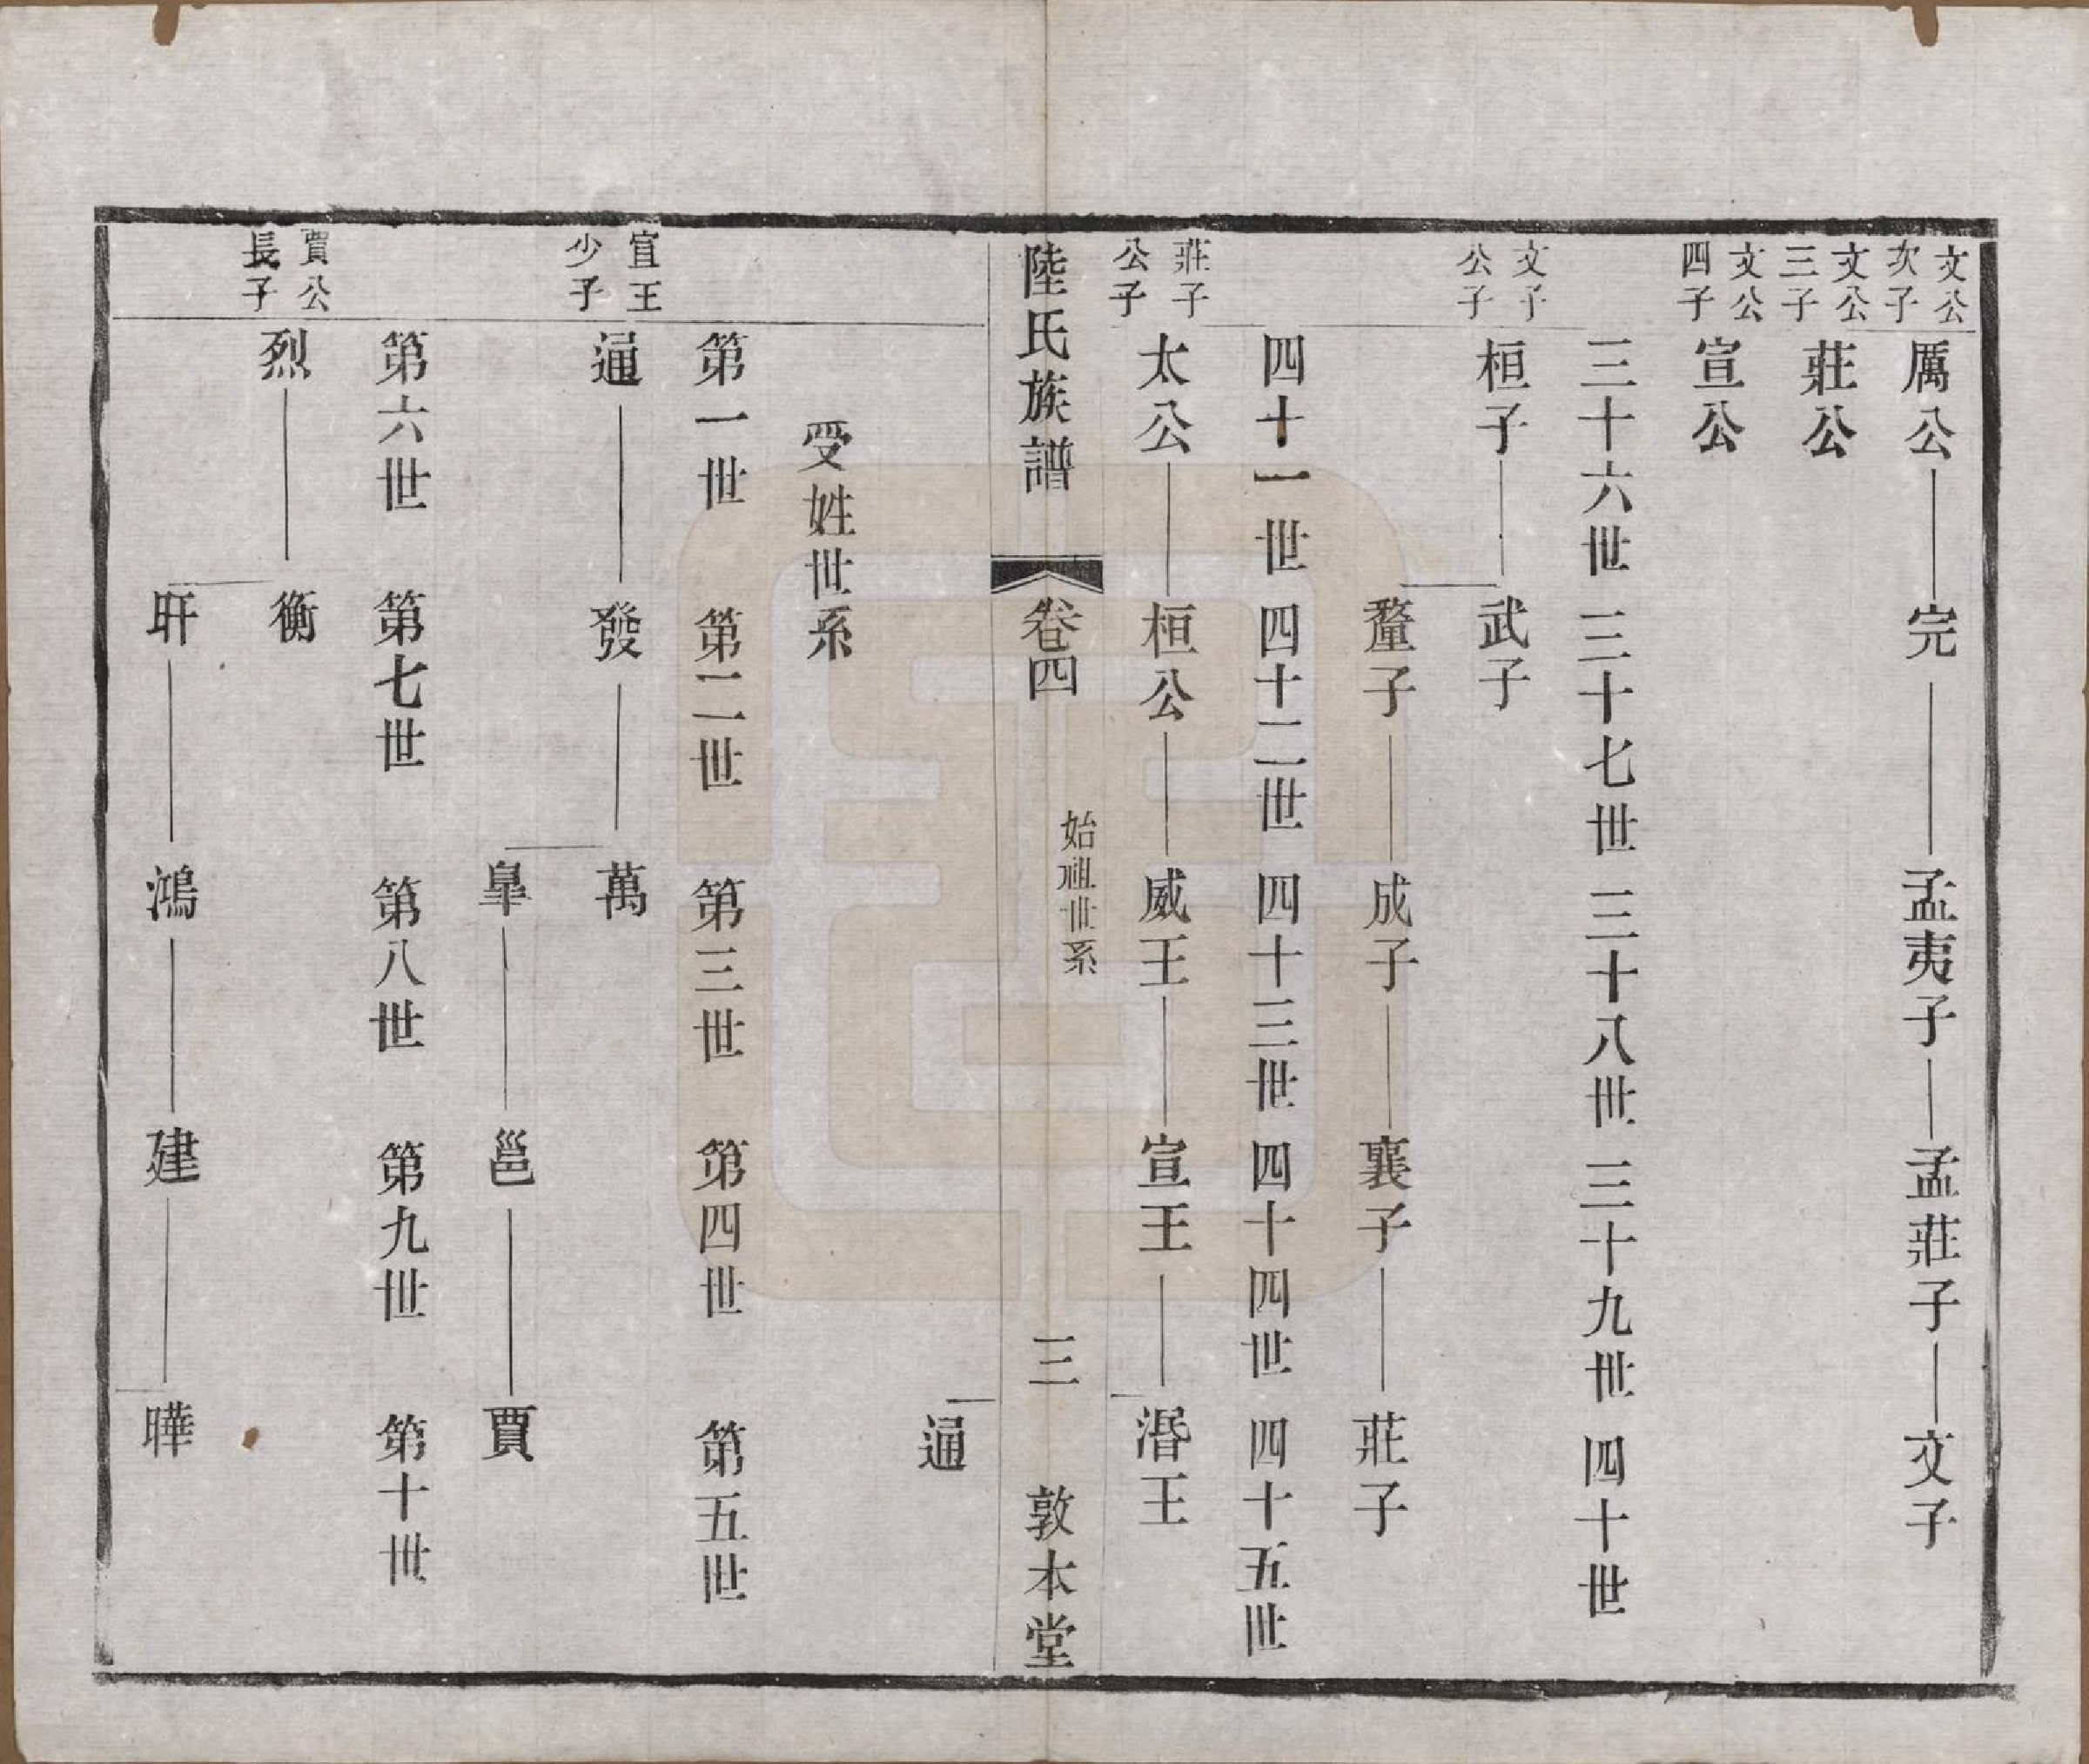 文公次子
厲公 完 孟夷子 孟莊子 文子
文公三子
莊公
文公四子
宣公
三十六世 三十七世 三十八世 三十九世 四十世
文子公子
桓子 武子
釐子 成子 襄子 莊子
四十一世 四十二世 四十三世 四十四世 四十五世
莊子公子
太公 桓公 威王 宣王 湣王
陸氏族譜 卷四 始祖世系 三 敦本堂
通
受姓世系
第一世 第二世 第三世 第四世 第五世
宣王少子
通 發 萬
臯 邕 賈
第六世 第七世 第八世 第九世 第十世
賈公長子
烈 衡
盱 鴻 建 曄